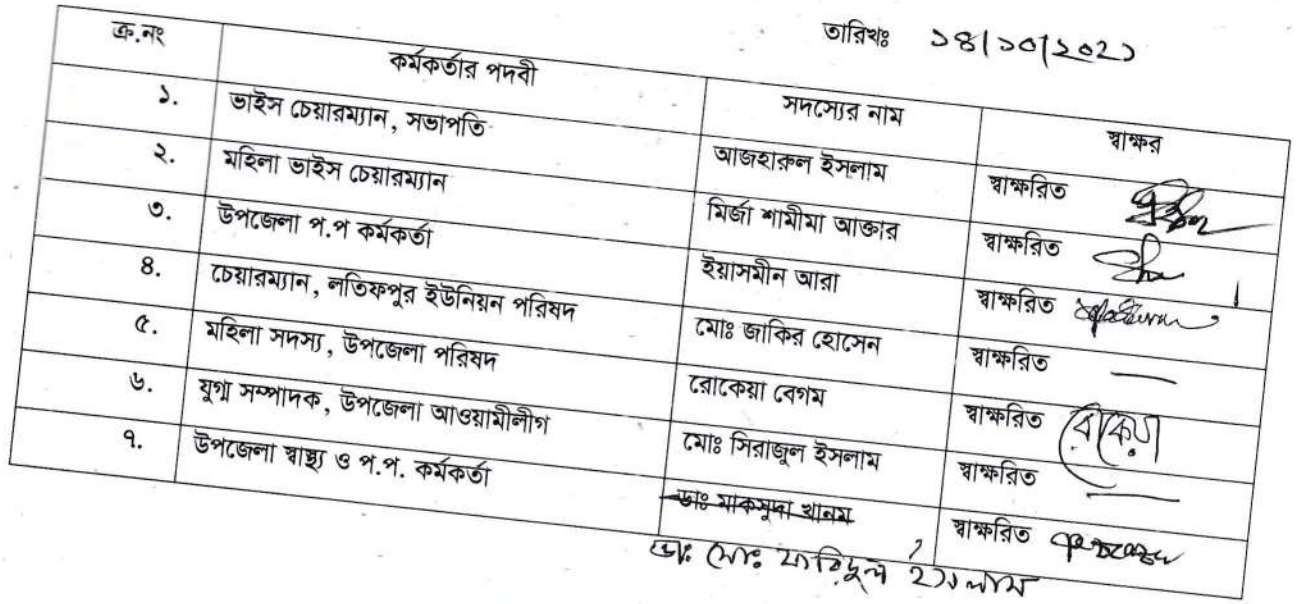 তারিখঃ ১৪/১০/২০২১
ক্র.নং কর্মকর্তার পদবী সদস্যের নাম স্বাক্ষর
১. ভাইস চেয়ারম্যান, সভাপতি আজহারুল ইসলাম স্বাক্ষরিত
২. মহিলা ভাইস চেয়ারম্যান মির্জা শামীমা আক্তার স্বাক্ষরিত
৩. উপজেলা প.প কর্মকর্তা ইয়াসমীন আরা স্বাক্ষরিত
৪. চেয়ারম্যান, লতিফপুর ইউনিয়ন পরিষদ মোঃ জাকির হোসেন স্বাক্ষরিত
৫. মহিলা সদস্য, উপজেলা পরিষদ রোকেয়া বেগম স্বাক্ষরিত রোকেয়া
৬. যুগ্ম সম্পাদক, উপজেলা আওয়ামীলীগ মোঃ সিরাজুল ইসলাম স্বাক্ষরিত
৭. উপজেলা স্বাস্থ্য ও প.প. কর্মকর্তা ডাঃ মাকসুদা খানম স্বাক্ষরিত
ডাঃ মোঃ ফরিদুল ইসলাম